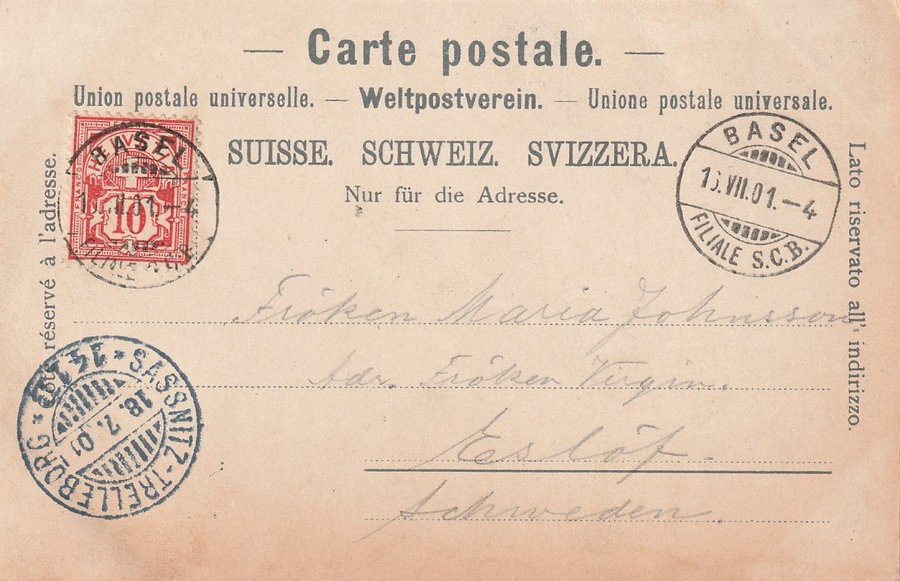 — Carte postale. —
Union postale universelle. — Weltpostverein. — Unione postale universale.
SUISSE. SCHWEIZ. SVIZZERA.
Nur für die Adresse.
Côté réservé à l'adresse.
Lato riservato all' indirizzo.
BASEL
VII.01.–4
10
BASEL
VII.01.–4
FILIALE S.C.B.
SASSNITZ-TRELLEBORG
18. 7. 01
Fröken Maria Johnsson
Adr. Fröken Virgin.
Eslöf.
Schweden.